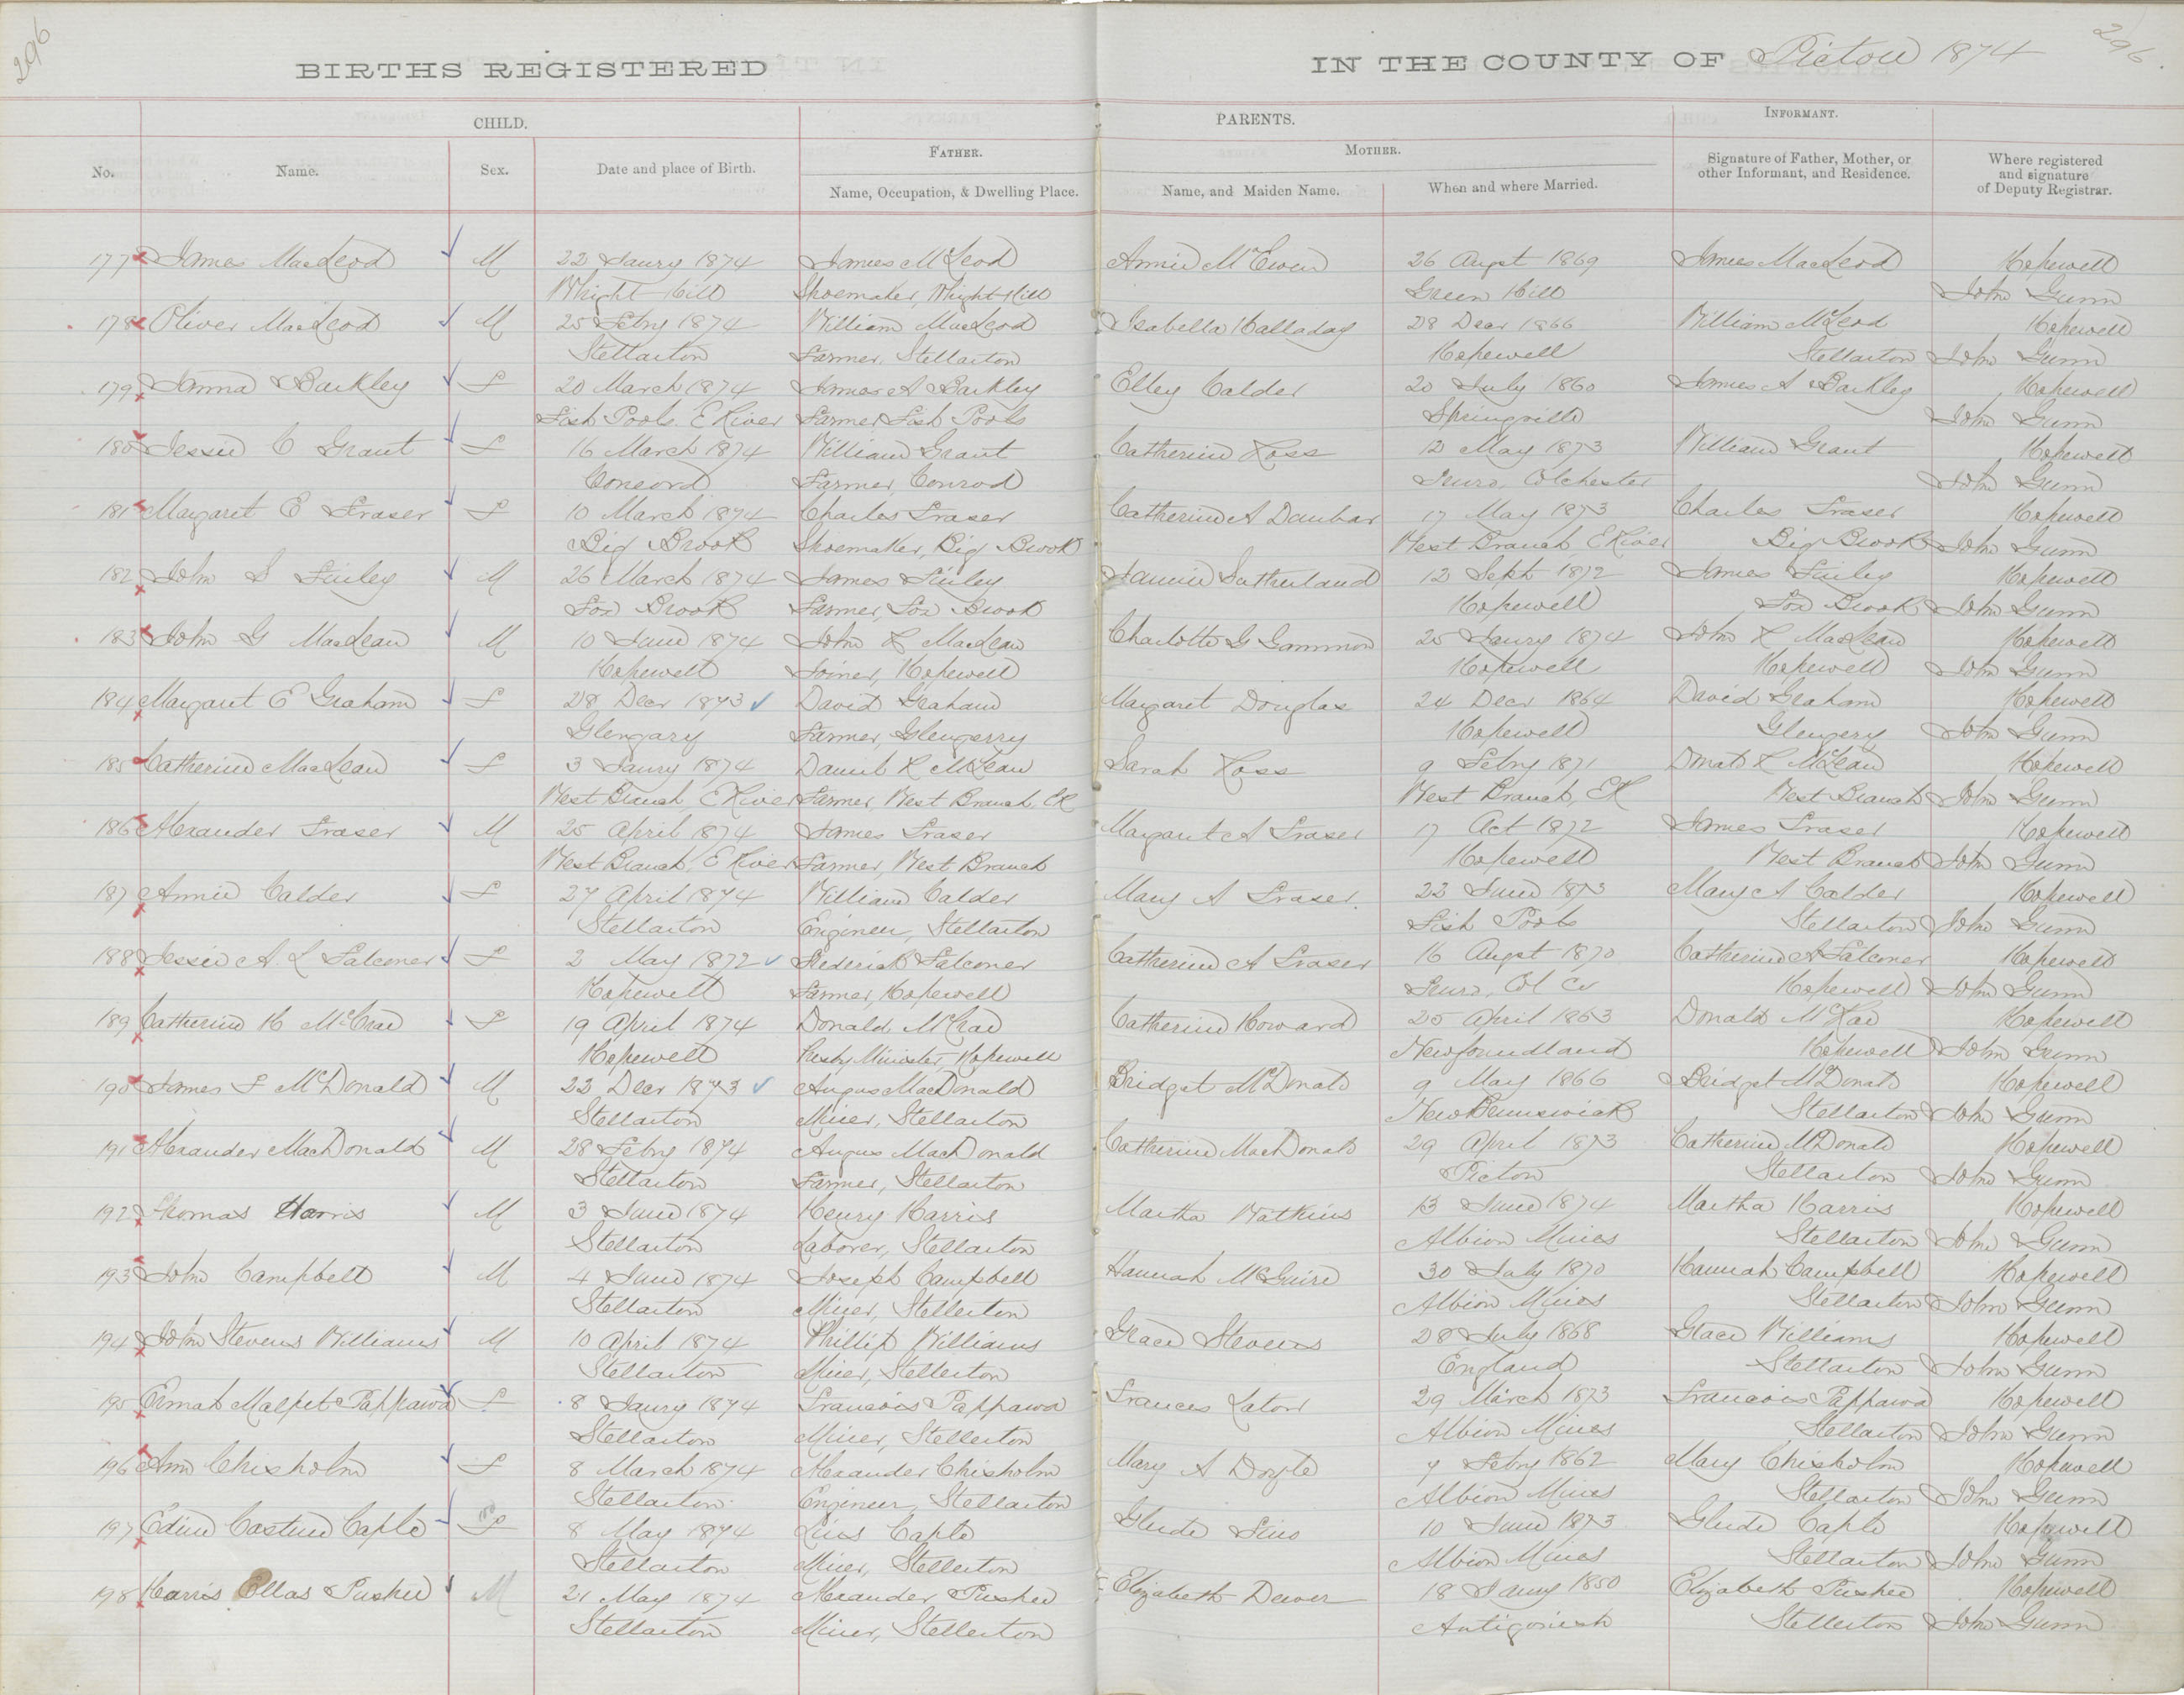 296
296
BIRTHS REGISTERED
IN THE COUNTY OF Pictou 1874
CHILD.
PARENTS.
INFORMANT.
No.
Name.
Sex.
Date and place of Birth.
FATHER.
Name, Occupation, & Dwelling Place.
MOTHER.
Name, and Maiden Name.
When and where Married.
Signature of Father, Mother, or other Informant, and Residence.
Where registered and signature of Deputy Registrar.
177 James MacLeod M 22 Jaury 1874 James McLeod Annie McEwen 26 Augst 1869 James MacLeod Hopewell
Wright Hill Shoemaker, Wright Hill Green Hill John Gunn
178 Oliver MacLeod M 25 Febry 1874 William MacLeod Isabella Halladay 28 Decr 1866 William McLeod Hopewell
Stellarton Farmer, Stellarton Hopewell Stellarton John Gunn
179 Barkley F 20 March 1874 James A Barkley Elley Calder 20 July 1860 James A Barkley Hopewell
Fish Pools. E River Farmer, Fish Pools Springville John Gunn
180 Jessie C Grant F 16 March 1874 William Grant Catherine Ross 12 May 1873 William Grant Hopewell
Concord Farmer, Conrod Truro, Colchester John Gunn
181 Margaret E Fraser F 10 March 1874 Charles Fraser Catherine A Dunbar 17 May 1873 Charles Fraser Hopewell
Big Brook Shoemaker, Big Brook West Branch, E River Big Brook John Gunn
182 John S Finley M 26 March 1874 James Finley Sutherland 12 Sept 1872 James Finley Hopewell
Fox Brook Farmer, Fox Brook Hopewell Fox Brook John Gunn
183 John G MacLean M 10 June 1874 John R MacLean Charlotte G Gammon 25 Jaury 1874 John R MacLean Hopewell
Hopewell Joiner, Hopewell Hopewell Hopewell John Gunn
184 Margaret E Graham F 28 Decr 1873 David Graham Margaret Douglas 24 Decr 1864 David Graham Hopewell
Glengary Farmer, Glengerry Hopewell Glengery John Gunn
185 Catherine MacLean F 3 Jaury 1874 R McLean Sarah Ross 9 Febry 1871 R McLean Hopewell
West Branch, E River Farmer, West Branch, ER West Branch, ER West Branch John Gunn
186 Alexander Fraser M 25 April 1874 James Fraser Margaret A Fraser 17 Oct 1872 James Fraser Hopewell
West Branch, E River Farmer, West Branch Hopewell West Branch John Gunn
187 Annie Calder F 27 April 1874 William Calder Mary A Fraser. 22 June 1873 Mary A Calder Hopewell
Stellarton Engineer, Stellarton Fish Pools Stellarton John Gunn
188 Jessie A. L Falconer F 2 May 1872 Frederick Falconer Catherine A Fraser 16 Augst 1870 Catherine A Falconer Hopewell
Hopewell Farmer, Hopewell Truro, Col Co Hopewell John Gunn
189 Catherine H McCrae F 19 April 1874 Donald McCrae Catherine Howard 25 April 1863 Donald McRae Hopewell
Hopewell Presby Minister, Hopewell Newfoundland Hopewell John Gunn
190 James F McDonald M 22 Decr 1873 Angus MacDonald Bridget McDonald 9 May 1866 Bridget McDonald Hopewell
Stellarton Miner, Stellarton New Brunswick Stellarton John Gunn
191 Alexander MacDonald M 28 Febry 1874 Angus MacDonald Catherine MacDonald 29 April 1873 Catherine McDonald Hopewell
Stellarton Farmer, Stellarton Pictou Stellarton John Gunn
192 Thomas Harris M 3 June 1874 Henry Harris Martha Watkins 13 June 1874 Martha Harris Hopewell
Stellarton Laborer, Stellarton Albion Mines Stellarton John Gunn
193 John Campbell M 4 June 1874 Joseph Campbell Hannah McGuire 30 July 1870 Hannah Campbell Hopewell
Stellarton Miner, Stellerton Albion Mines Stellarton John Gunn
194 John Stevens Williams M 10 April 1874 Phillip Williams Grace Stevens 28 July 1868 Grace Williams Hopewell
Stellarton Miner, Stellerton England Stellarton John Gunn
195 F 8 Jaury 1874 Francois Pappawa Frances 29 March 1873 Francois Pappawa Hopewell
Stellarton Miner, Stellerton Albion Mines Stellarton John Gunn
196 Ann Chisholm F 8 March 1874 Alexander Chisholm Mary A Doyle 7 Febry 1862 Mary Chisholm Hopewell
Stellarton Engineer, Stellarton Albion Mines Stellarton John Gunn
197 Caple F 8 May 1874 Caple 10 June 1873 Caple Hopewell
Stellarton Miner, Stellerton Albion Mines Stellarton John Gunn
198 Harris Ellas Pushee M 21 May 1874 Alexander Pushee Elizabeth Dewer 18 Jaury 1850 Elizabeth Pushee Hopewell
Stellarton Miner, Stellerton Antigonish Stellerton John Gunn